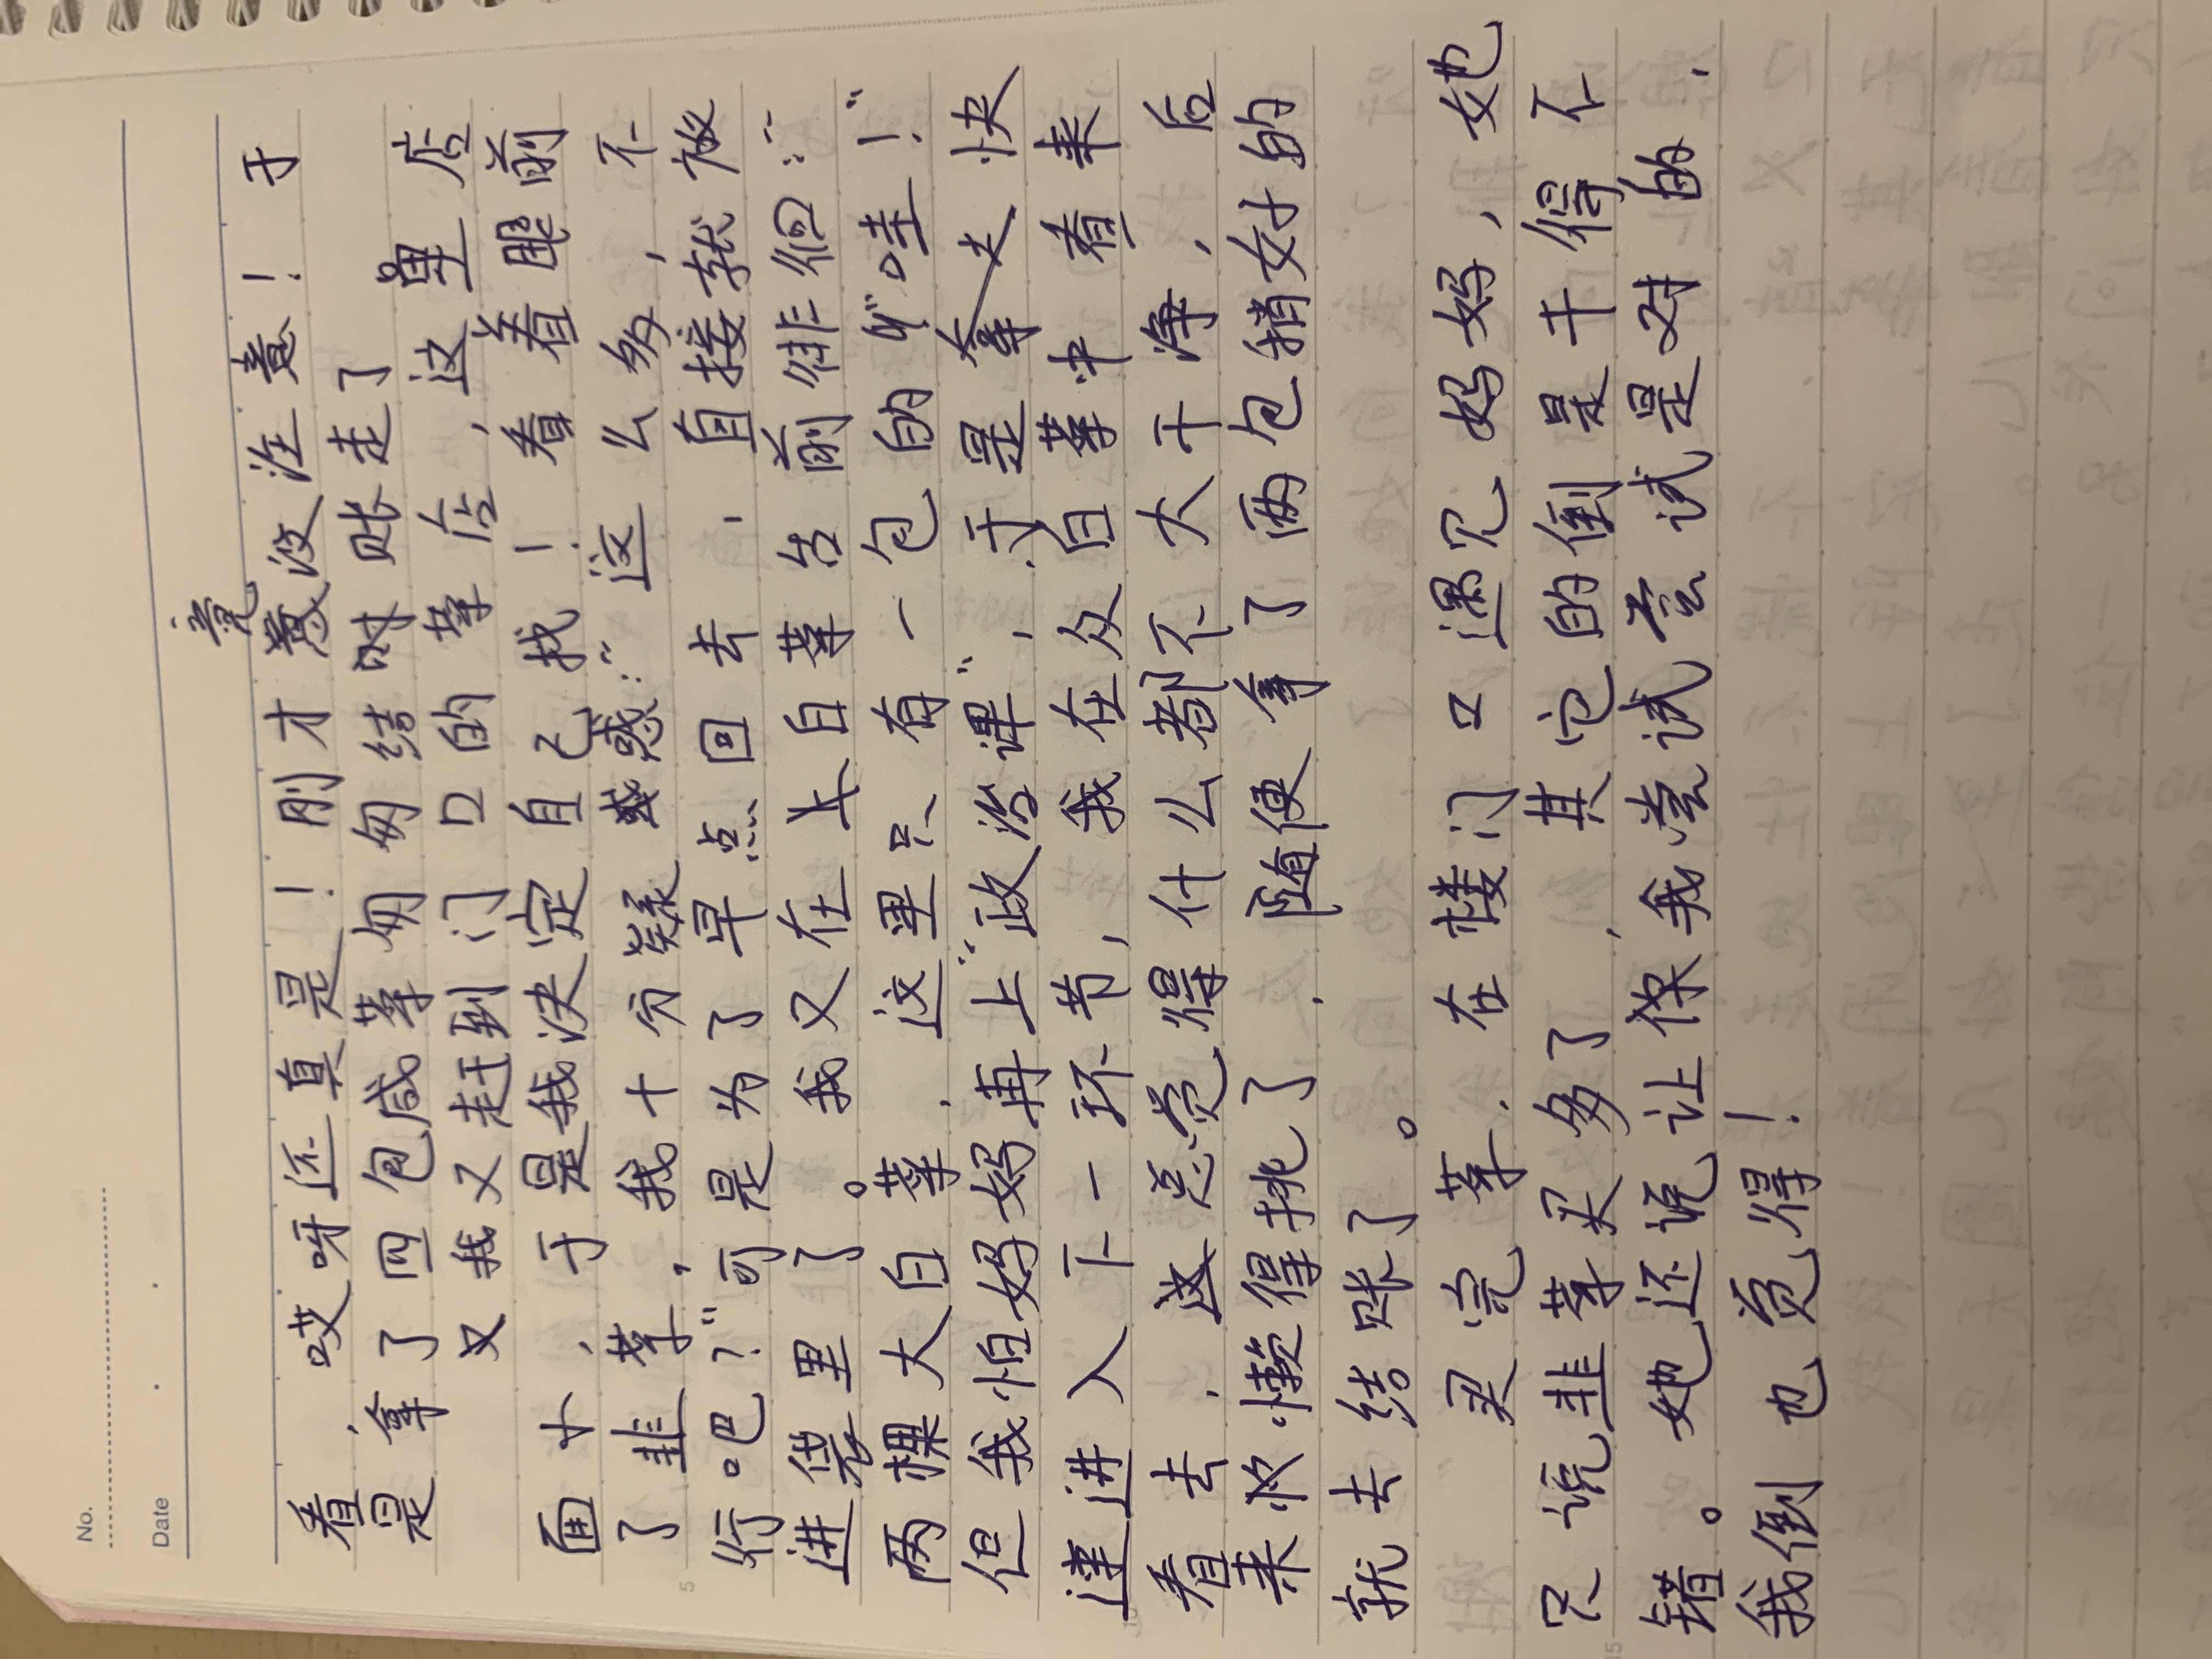 No.
Date
竟
看，哎呀还真是！刚才没注意！于
是，拿了四包咸菜匆匆结时账走了
又我又赶到门口的菜店，这里店
面小，于是我决定自己找！看着眼前
了韭菜，我十分疑惑：“这么多，不
行吧？”可是为了早点回去，直接就放
进袋里了。我又在大白菜去前徘徊：
两棵大白菜，这里只有一包的“哇！”
但我怕妈妈再上“政治课”，于是拿快
速进入下一环节，我在众白菜中看来
看去，这总觉得什么都不大干净，后
来懒得挑了，随便拿了两包稍好的
就去结账了。
买完菜，在楼门口遇见妈妈，她
只说韭菜买多了，其它的倒是干得不
错。她还说让我尝试尝试是对的，
我倒也觉得！